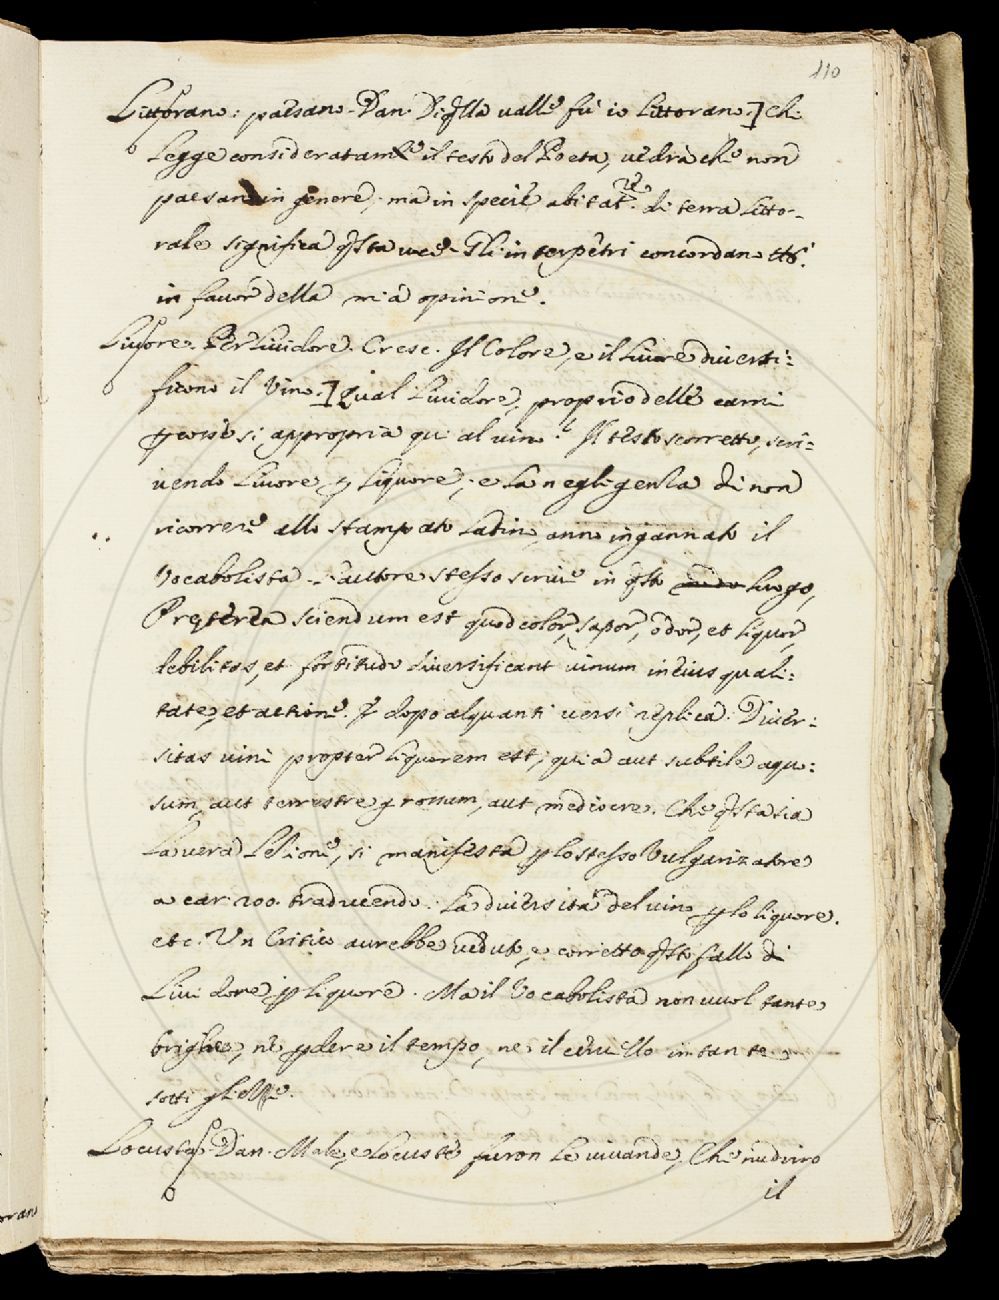 110
Littorano: paesano. Dan. Di qlla valle fù io littorano.] Chi
legge consideratamte. il testo del Poeta, vedrà che non
paesano in genere, ma in specie abitatre. di terra litto-
rale significa qsta voce. Gl'interpetri concordano tti.
in favor della mia opinione.
Livore. Per lividore. Cresc. Il Colore, e il livore diversi:
ficono il Vino.] Qual lividore, proprio delle carni
pcosse si appropria quì al vino? Il testo scorretto, scri:
vendo livore p liquore, e la negligenza di non
ricorrere allo stampato latino, anno ingannato il
Vocabolista. L'autore stesso scrive in qsto luogo,
Preterea sciendum est quod color, sapor, odor, et liquor,
debilitas, et fortitudo diversificant vinum in eius quali:
tate, et actione. E dopo alquanti versi replica. Diver:
sitas vini propter liquorem est, quia aut subtile aquo:
sum, aut terrestre grossum, aut mediocre. Che qsta sia
la vera lezione, si manifesta p lo stesso Vulgarizatore
a car. 200. traducendo. La diversità del vino p lo liquore.
etc. Un Critico aurebbe veduto, e corretto qsto fallo di
Lividore p liquore. Ma il Vocabolista non vuol tante
brighe, ne pdere il tempo, ne il cervello in tante
sottigliezze.
Locusta. Dan. Mele, e locuste furon le vivande, Che nudriro
il